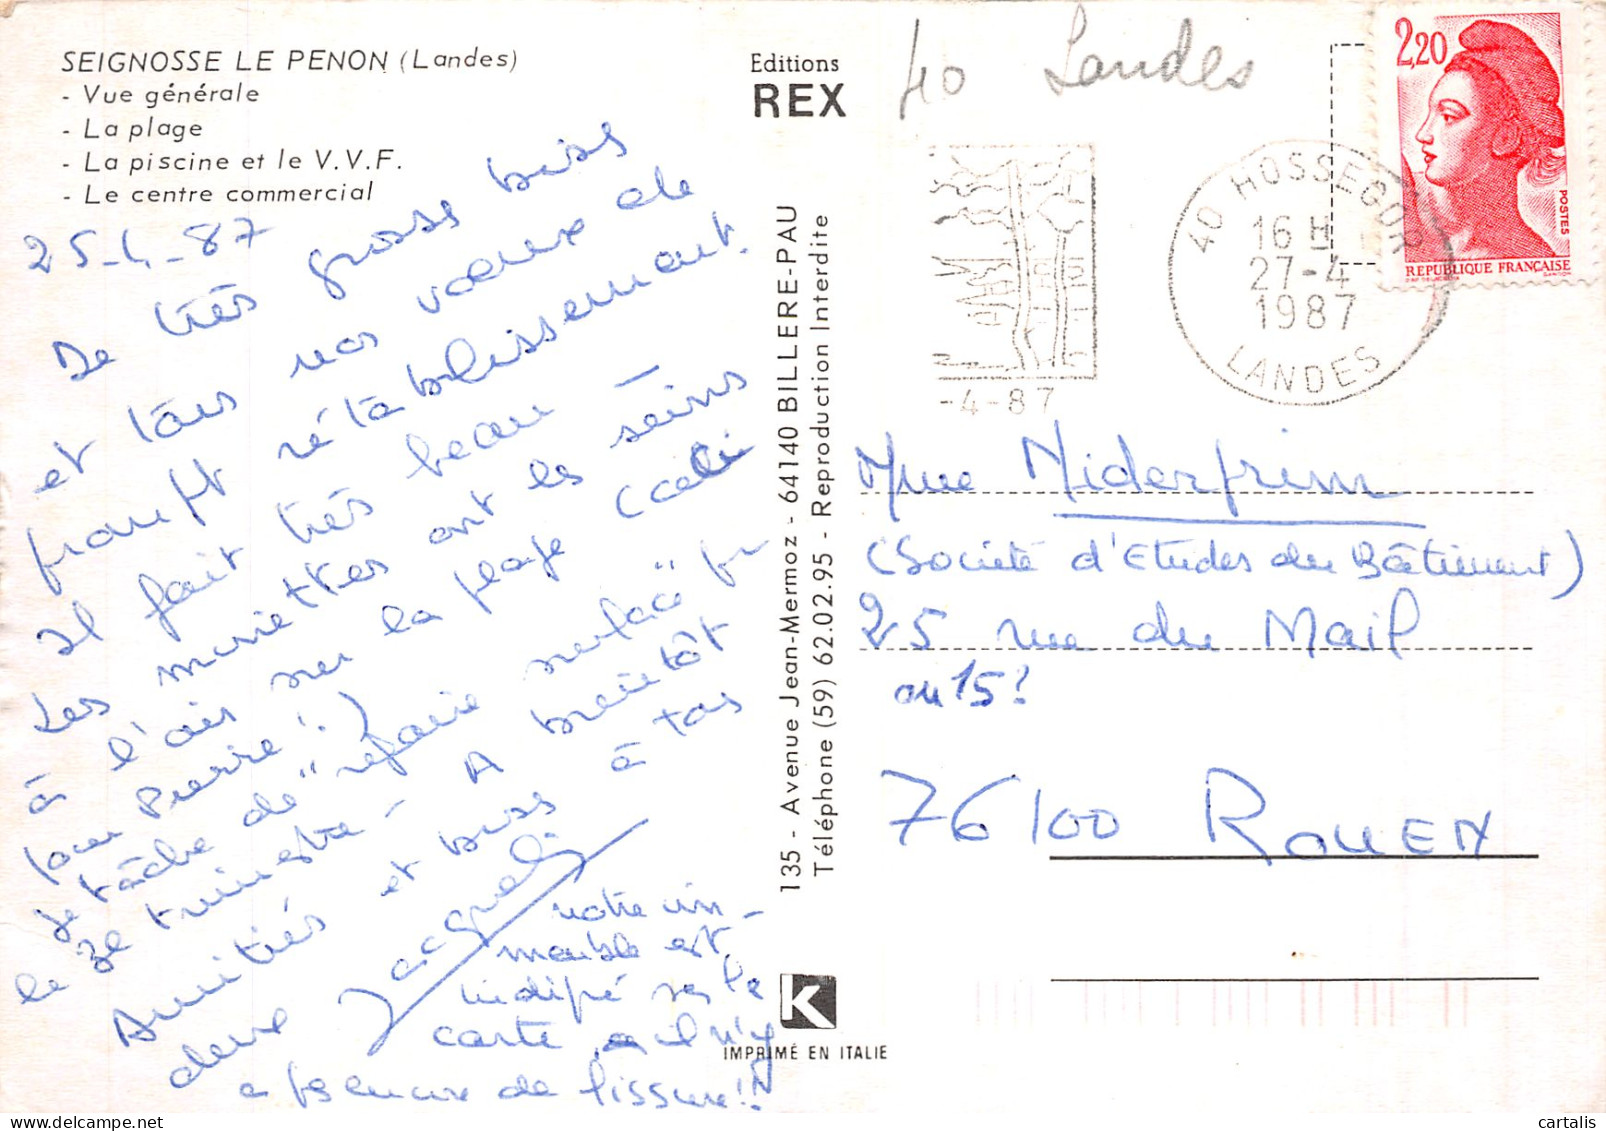 SEIGNOSSE LE PENON (Landes)
- Vue générale
- La plage
- La piscine et le V.V.F.
- Le centre commercial
25-4-87
De très grosse bises
et tous nos voeux de
prompt rétablissement.
Il fait très beau -
Les minettes ont les seins
à l'air sur la plage (
pour Pierre !)
Je tâche de "refaire surface" pr
le 3e trimestre - A bientôt
Amitiés et bises à tous
deux
notre im-
meuble est
indiqué sur la
carte, il n'y
a pas encore de fissure!!
Editions
REX
135 - Avenue Jean-Mermoz - 64140 BILLERE-PAU
Téléphone (59) 62.02.95 - Reproduction Interdite
K
IMPRIMÉ EN ITALIE
40 Landes
2,20
POSTES
REPUBLIQUE FRANÇAISE
40 HOSSEGOR
16 H
27-4
1987
LANDES
-4-87
Mme Niderprim
(Société d'Etudes du Bâtiment)
25 rue du Mail
ou 15?
76100 ROUEN